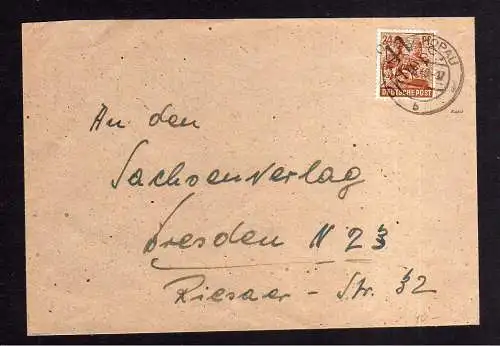 24
41
ZSCHOPAU
DEUTSCHE POST
b
An den
Sachsenverlag
Dresden N 23
Riesaer - Str. 32